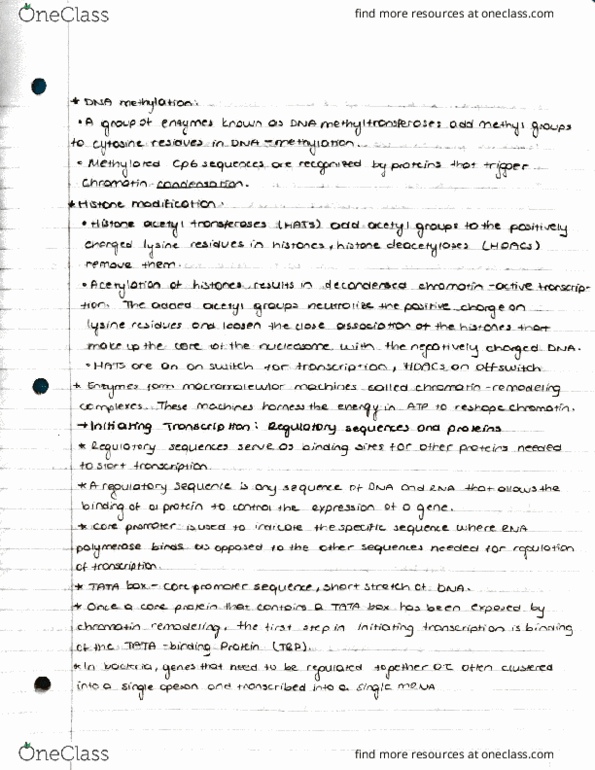 OneClass
find more resources at oneclass.com
* DNA methylation:
• A group of enzymes known as DNA methyltransferases add methyl groups
to cytosine residues in DNA - methylation.
• Methylated CpG sequences are recognized by proteins that trigger
chromatin condensation.
* Histone modification:
• Histone acetyl transferases (HATs) add acetyl groups to the positively
charged lysine residues in histones, histone deacetylases (HDACs)
remove them.
• Acetylation of histones results in decondensed chromatin - active transcrip-
tion. The added acetyl groups neutralize the positive charge on
lysine residues and loosen the close association of the histones that
make up the core of the nucleosome with the negatively charged DNA.
• HATs are an on switch for transcription, HDACs an off switch
* Enzymes form macromolecular machines called chromatin-remodeling
complexes. These machines harness the energy in ATP to reshape chromatin.
→ Initiating Transcription: Regulatory sequences and proteins
* Regulatory sequences serve as binding sites for other proteins needed
to start transcription.
* A regulatory sequence is any sequence of DNA and RNA that allows the
binding of a protein to control the expression of a gene.
* core promoter is used to indicate the specific sequence where RNA
polymerase binds as opposed to the other sequences needed for regulation
of transcription.
* TATA box - core promoter sequence, short stretch of DNA.
* Once a core protein that contains a TATA box has been exposed by
chromatin remodeling, the first step in initiating transcription is binding
of the TATA-binding Protein (TBP).
* In bacteria, genes that need to be regulated together are often clustered
into a single operon and transcribed into a single mRNA
OneClass
find more resources at oneclass.com